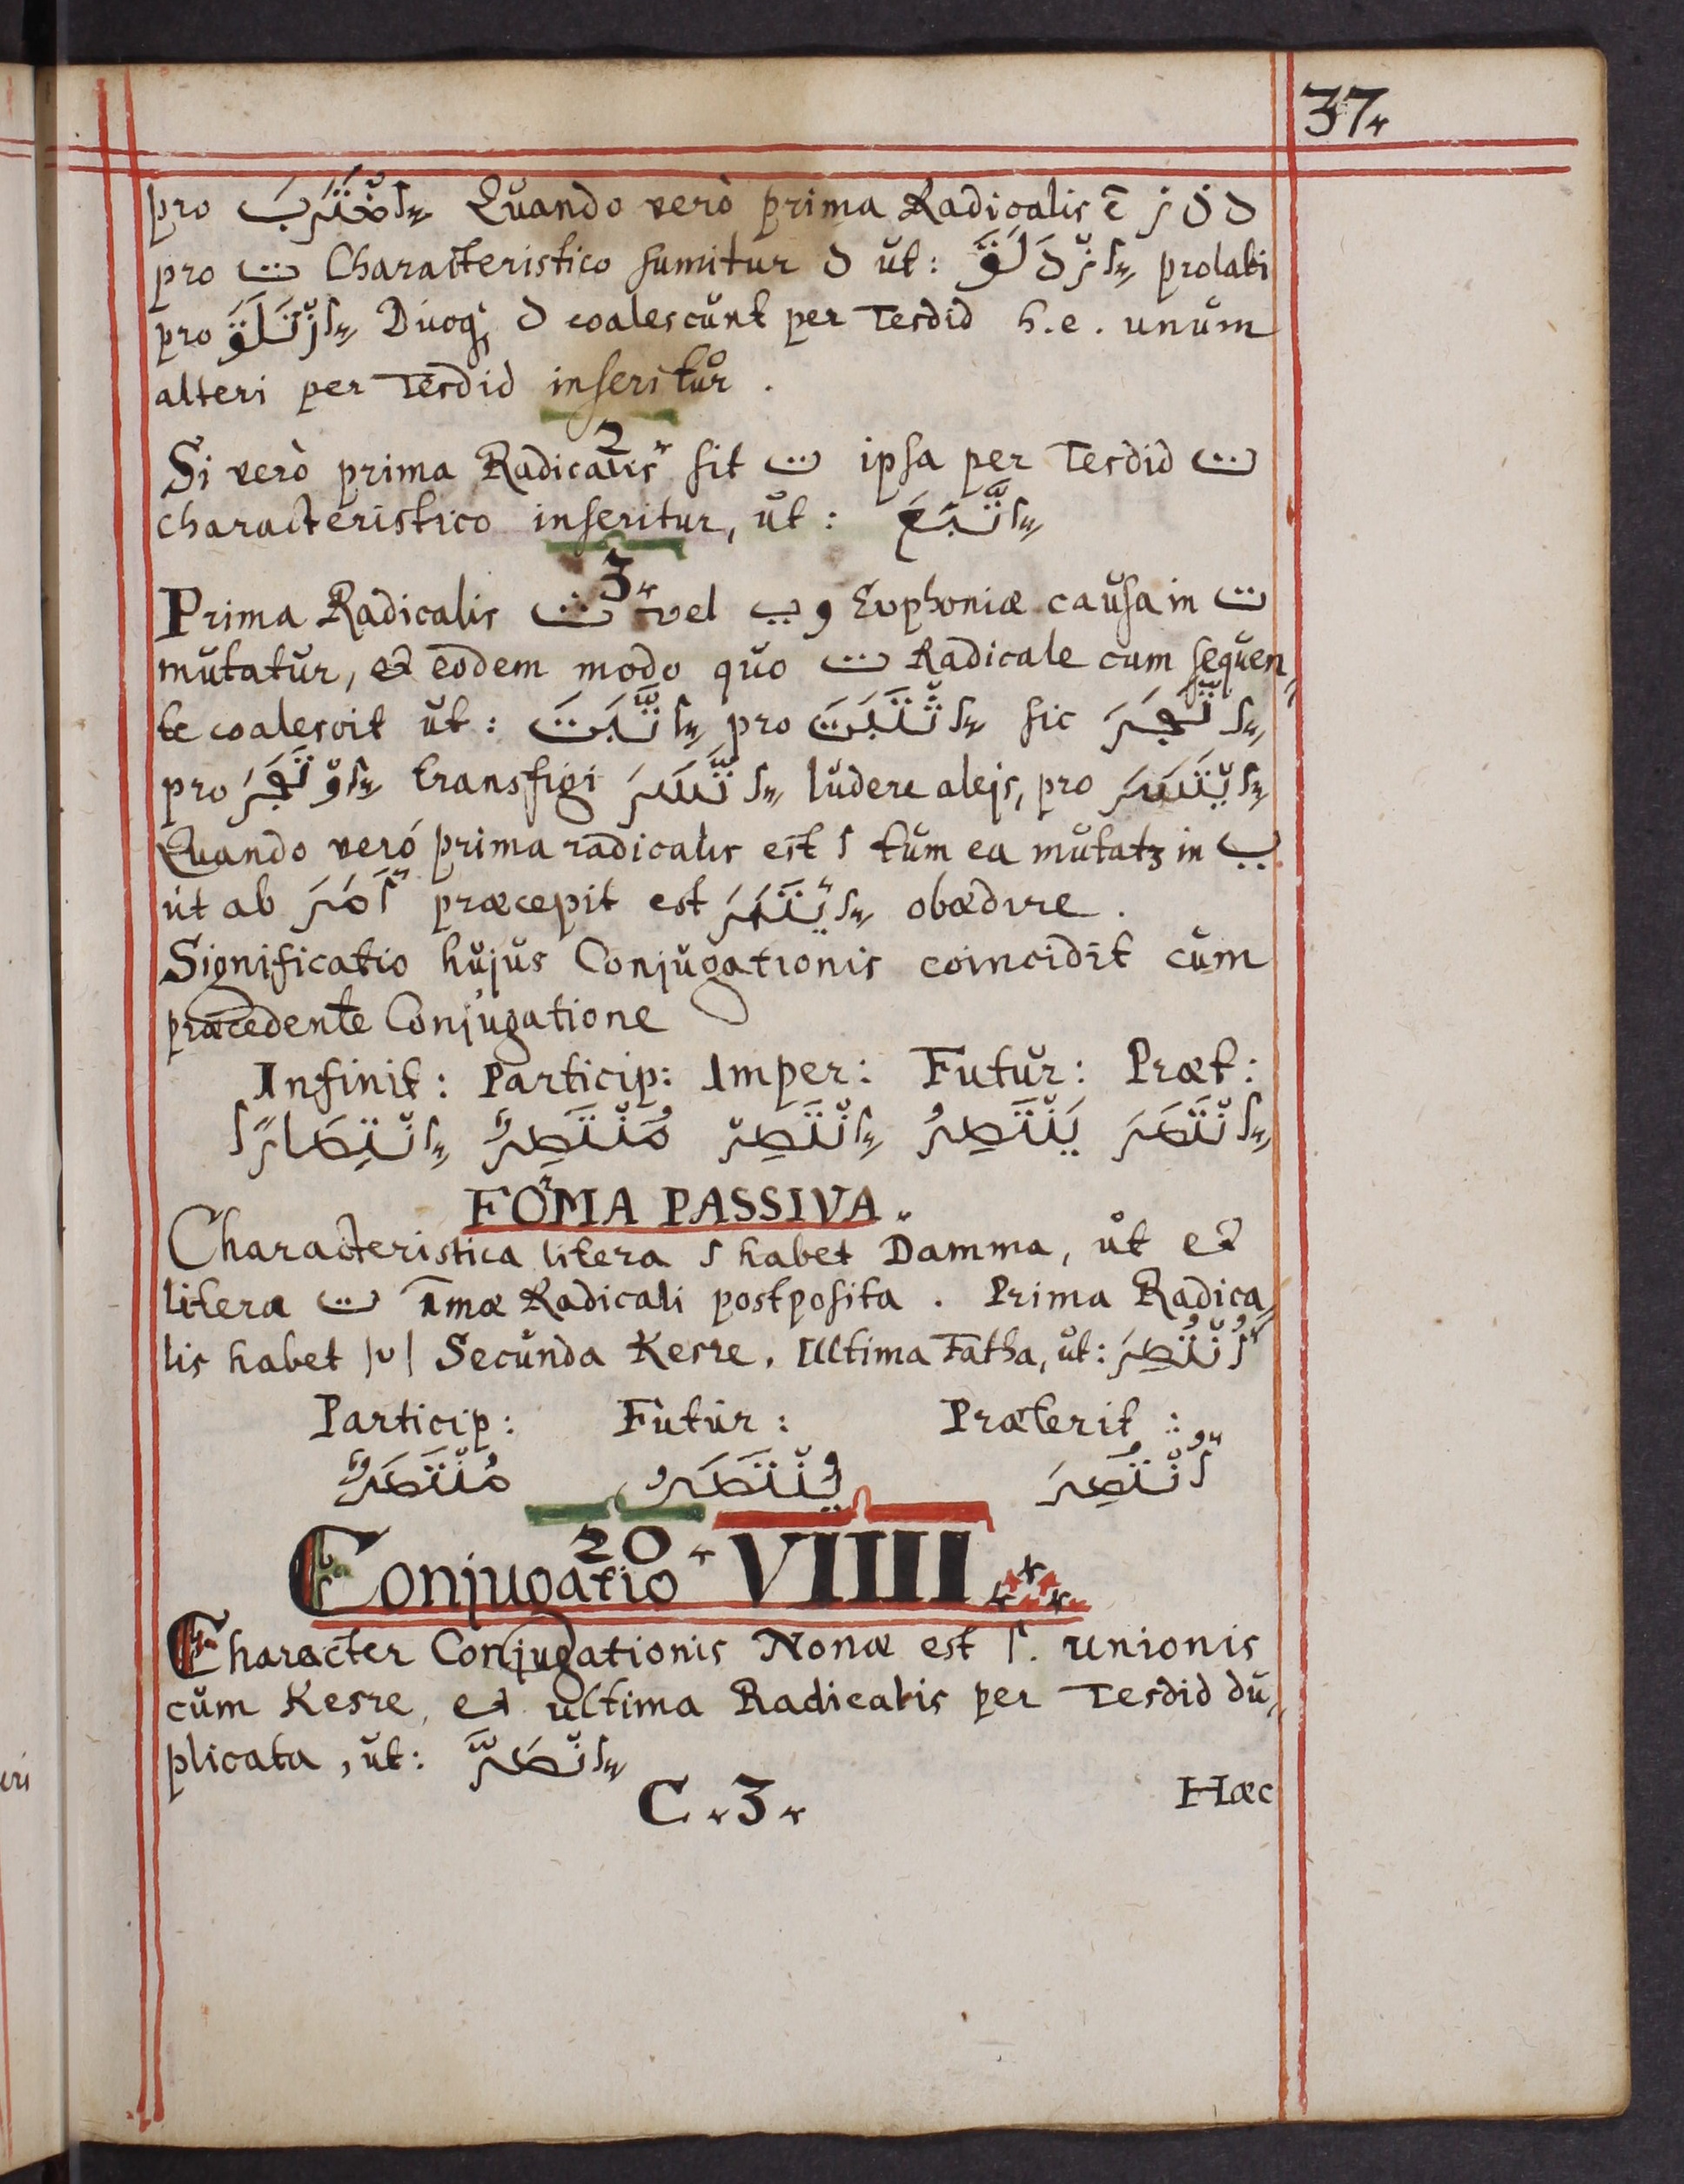 37.
pro اِضْتَرَبَ Quando verò prima Radicalis ē د ذ ز
pro ت Characteristico sumitur د ut: اِزْدَلَقَ prolabi
pro اِزْتَلَقَ Duoq; د coalescunt per Tesdid h.e. unum
alteri per Tesdid inseritur.
2.
Si verò prima Radicalis sit ت ipsa per Tesdid ت
characteristico inseritur, ut: اِتَّبَعَ
3.
Prima Radicalis ث vel و ي Euphoniæ causa in ت
mutatur, et eodem modo quo ت Radicale cum sequen„
te coalescit ut: اِتَّبَتَ pro اِثْتَبَتَ sic اِتَّجَرَ
pro اِوْتَجَرَ transfigi اِتَّسَرَ ludere alejs, pro اِيْتَسَرَ
Quando veró prima radicalis est ا tum ea mutatꝫ in ي
ut ab اَمَرَ præcepit est اِيْتَمَرَ obædire.
Significatio hujus Conjugationis coincidit cum
præcedente Conjugatione
Infinit: Particip: Imper: Futur: Præt:
اِنْتَصَرَ يَنْتَصِرُ اِنْتَصِرْ مُنْتَصِرٌ اِنْتِصَارًا
FOrMA PASSIVA.
Characteristica litera ا habet Damma, ut et
litera ت 1mæ Radicali postposita. Prima Radica„
lis habet |ʋ| Secunda Kesre, Ultima Fatha, ut: اُنْتُصِرَ
Particip: Futur: Præterit:
اُنْتُصِرَ يُنْتَصَرُ مُنْتَصَرٌ
20.
Conjugatio VIIII.
Character Conjugationis Nonæ est ا. unionis
cum Kesre, et ultima Radicalis per Tesdid du„
plicata, ut: اِنْصَرَّ
C.3. Hæc